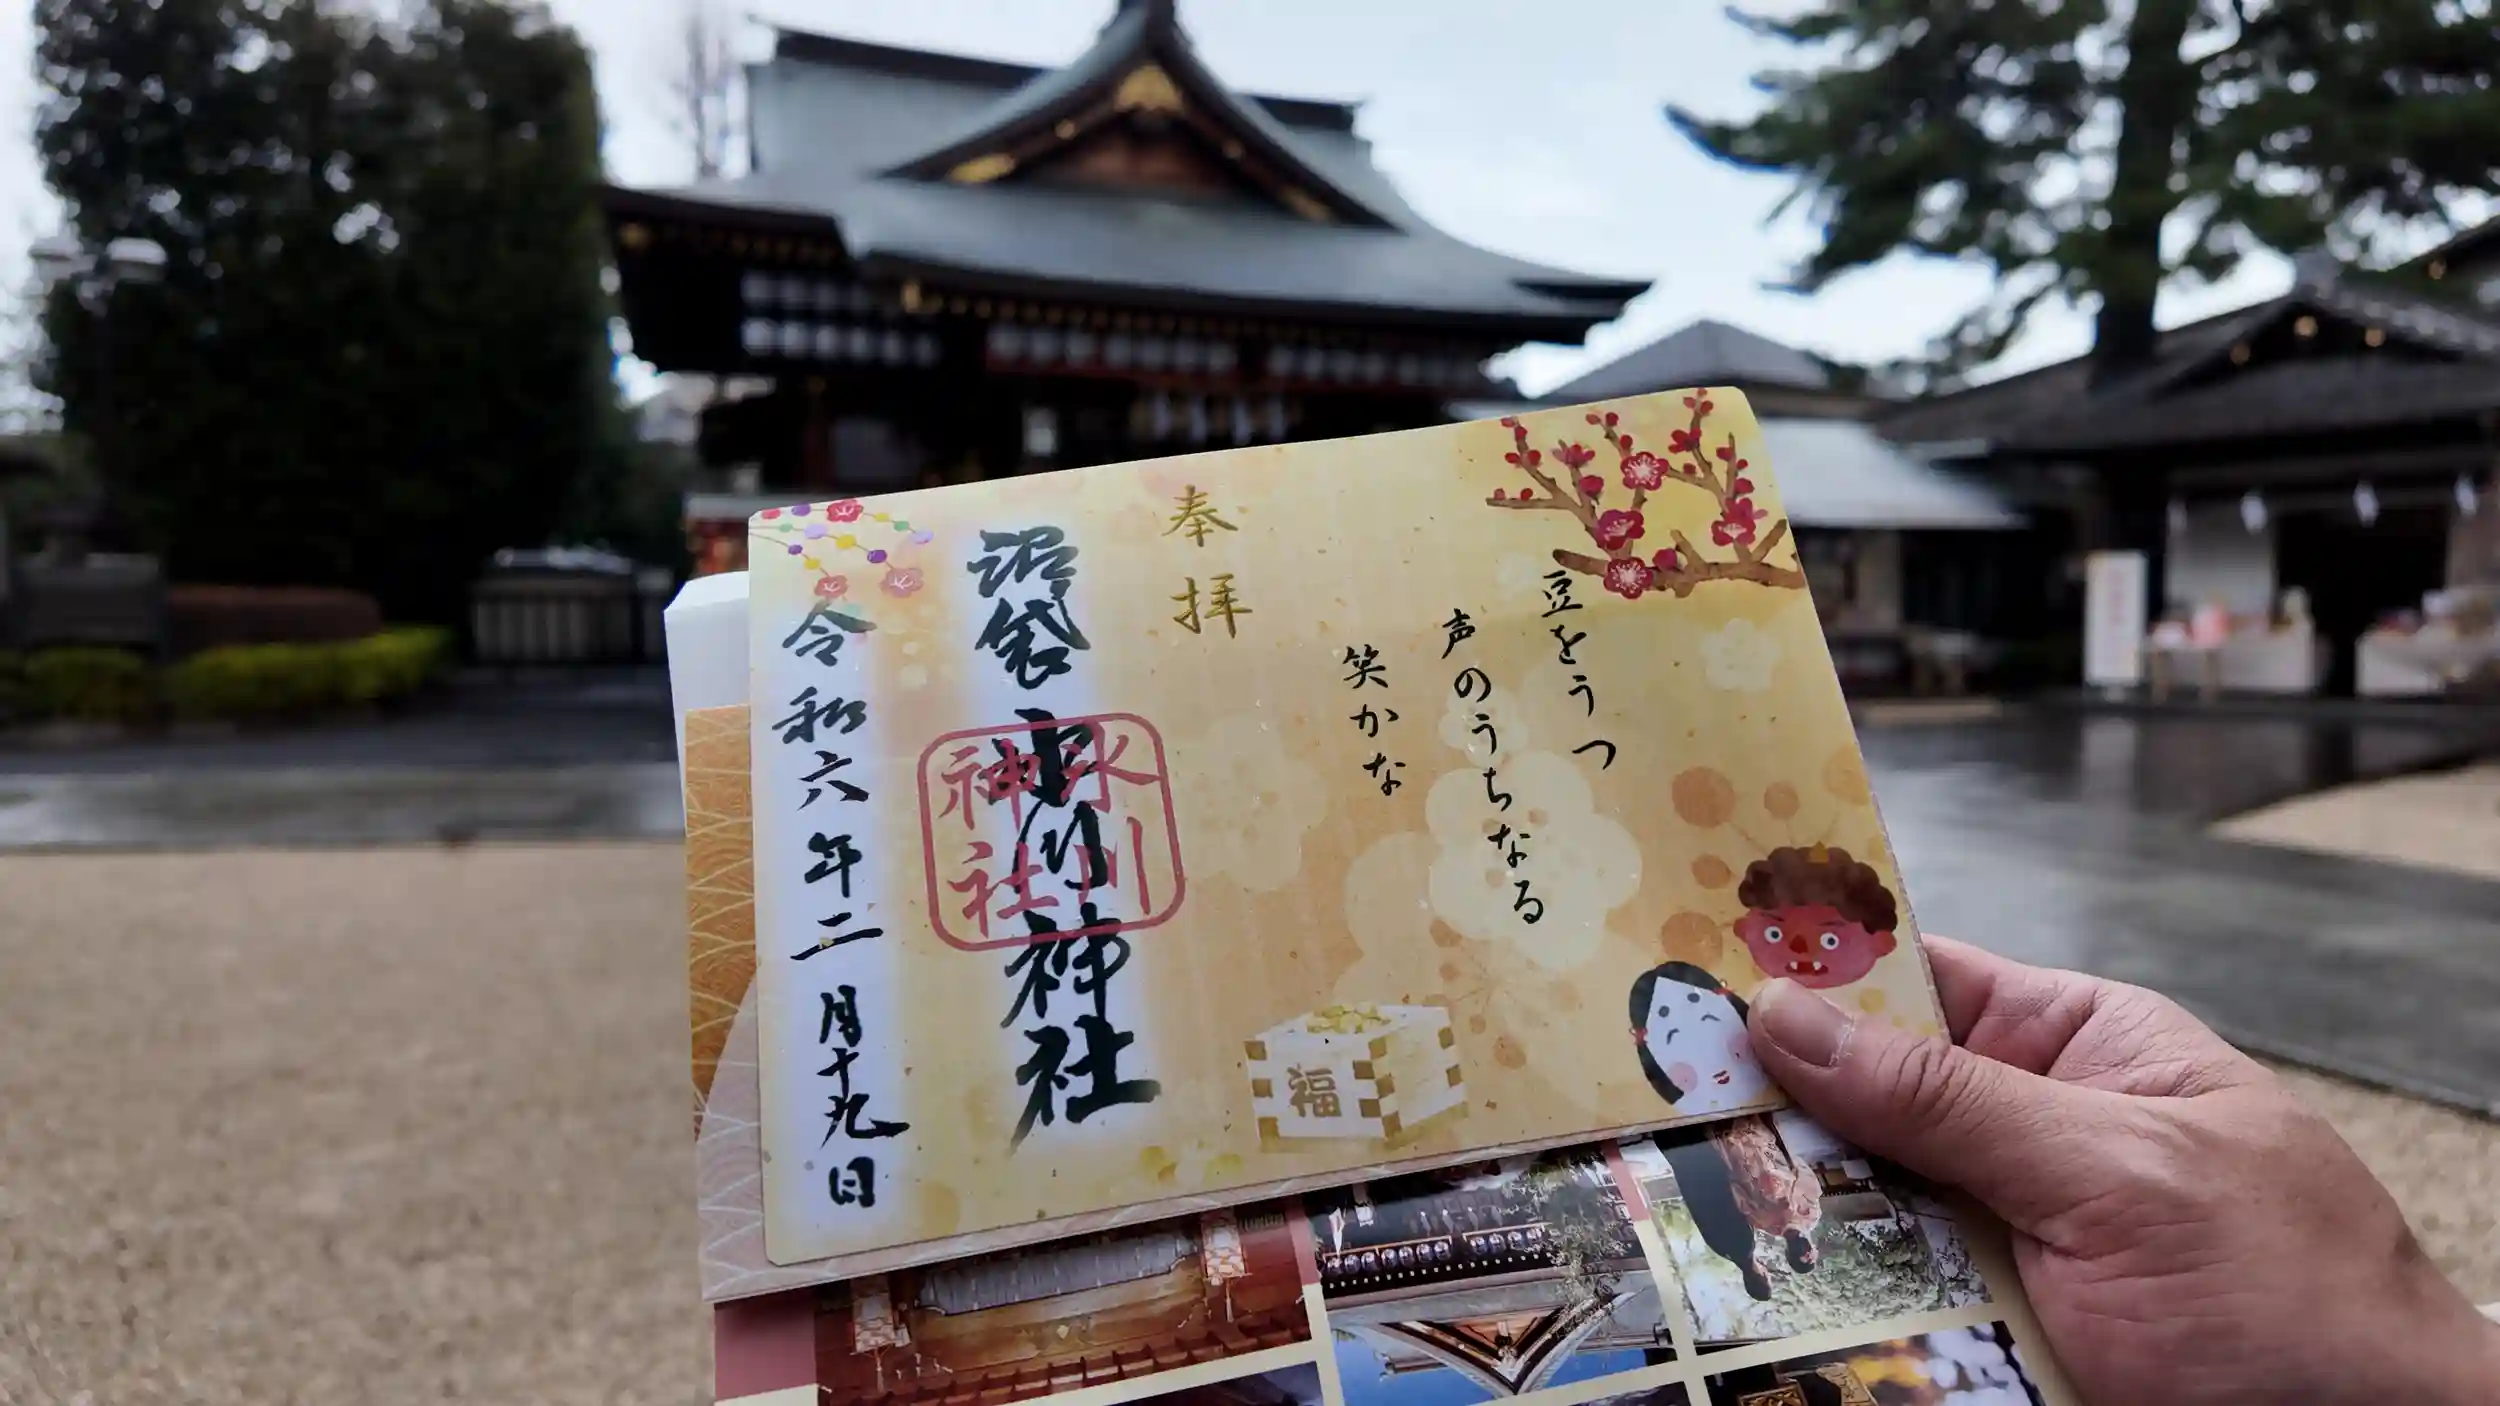 豆をうつ
声のうちなる
笑かな
奉拝
沼袋氷川神社
氷川神社
令和六年二月十九日
福